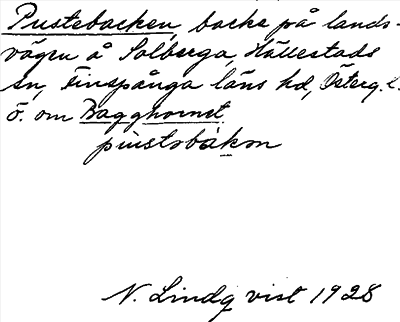 Pustebacken, backe på lands-
vägen å Solberga, Hällestads
sn, Finspånga läns hd, Österg. l.
ö. om Bagghornet.
pustobakon
N. Lindq vist 1928